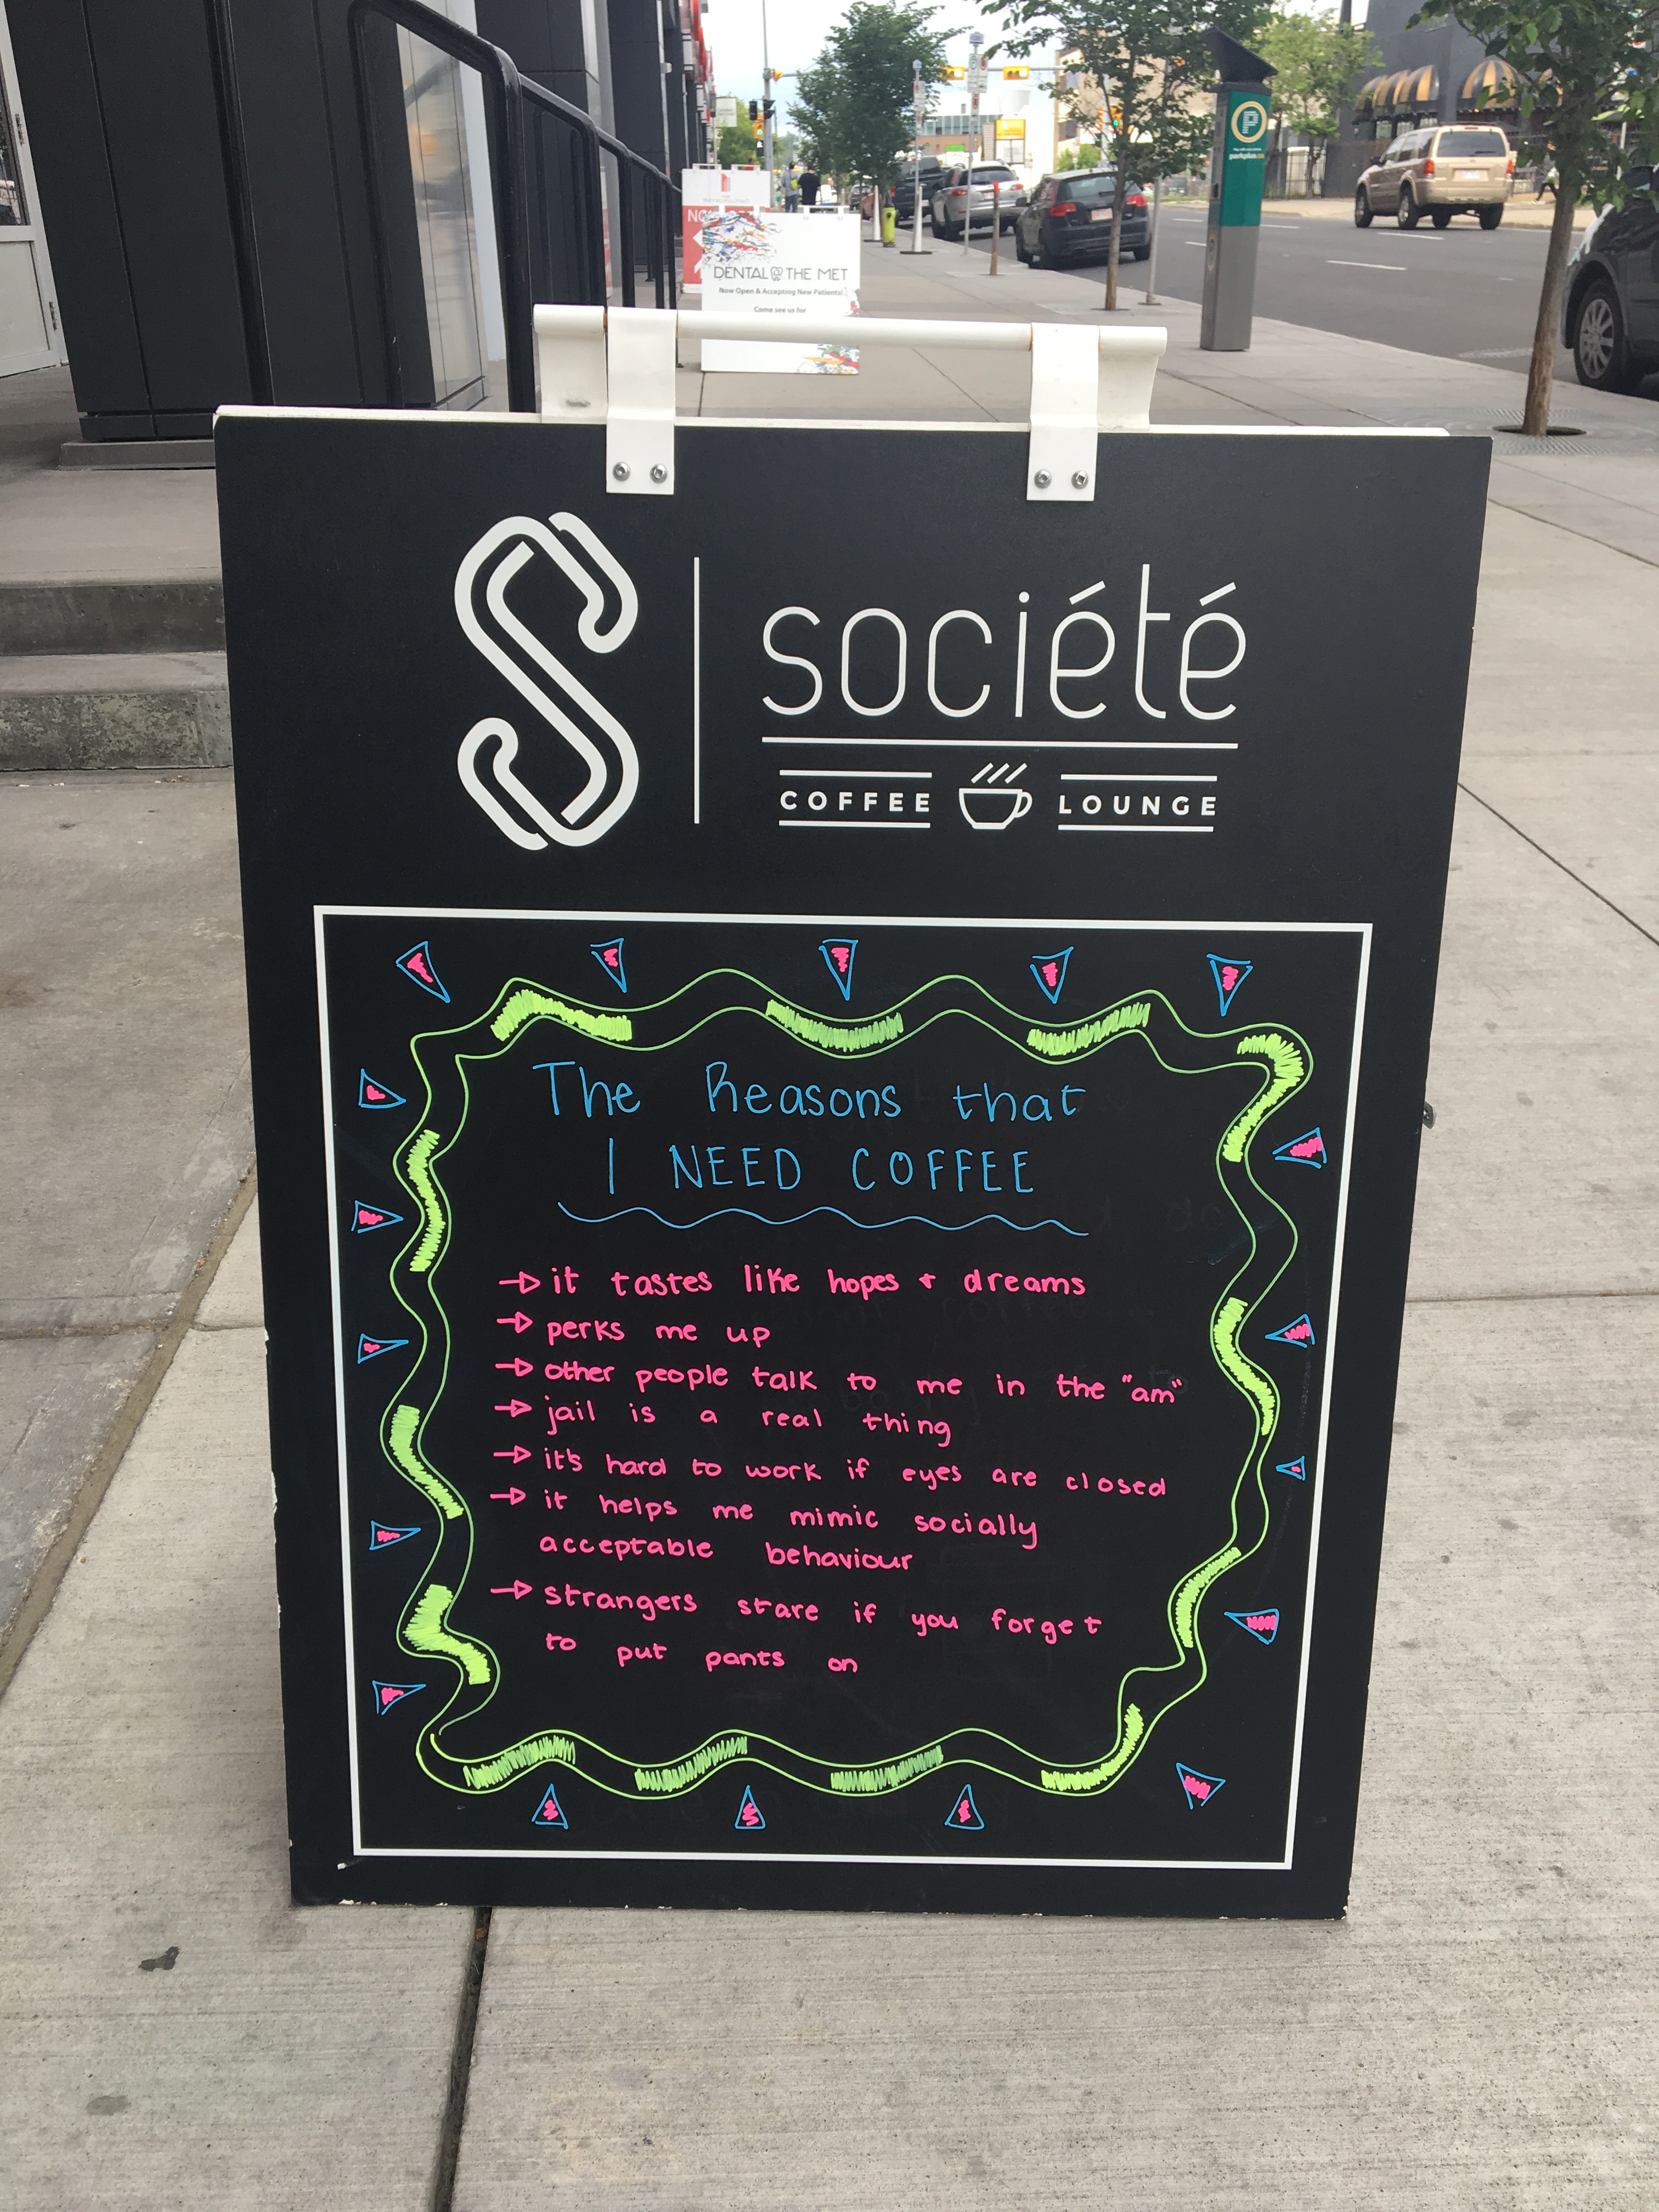 NO
DENTAL THE MET
Now Open & Accepting New Patients!
Come see us for
P
parkplus
S
société
COFFEE LOUNGE
The Reasons that
I NEED COFFEE
it tastes like hopes + dreams
perks me up
other people talk to me in the "am"
jail is a real thing
it's hard to work if eyes are closed
it helps me mimic socially
acceptable behaviour
strangers stare if you forget
to put pants on